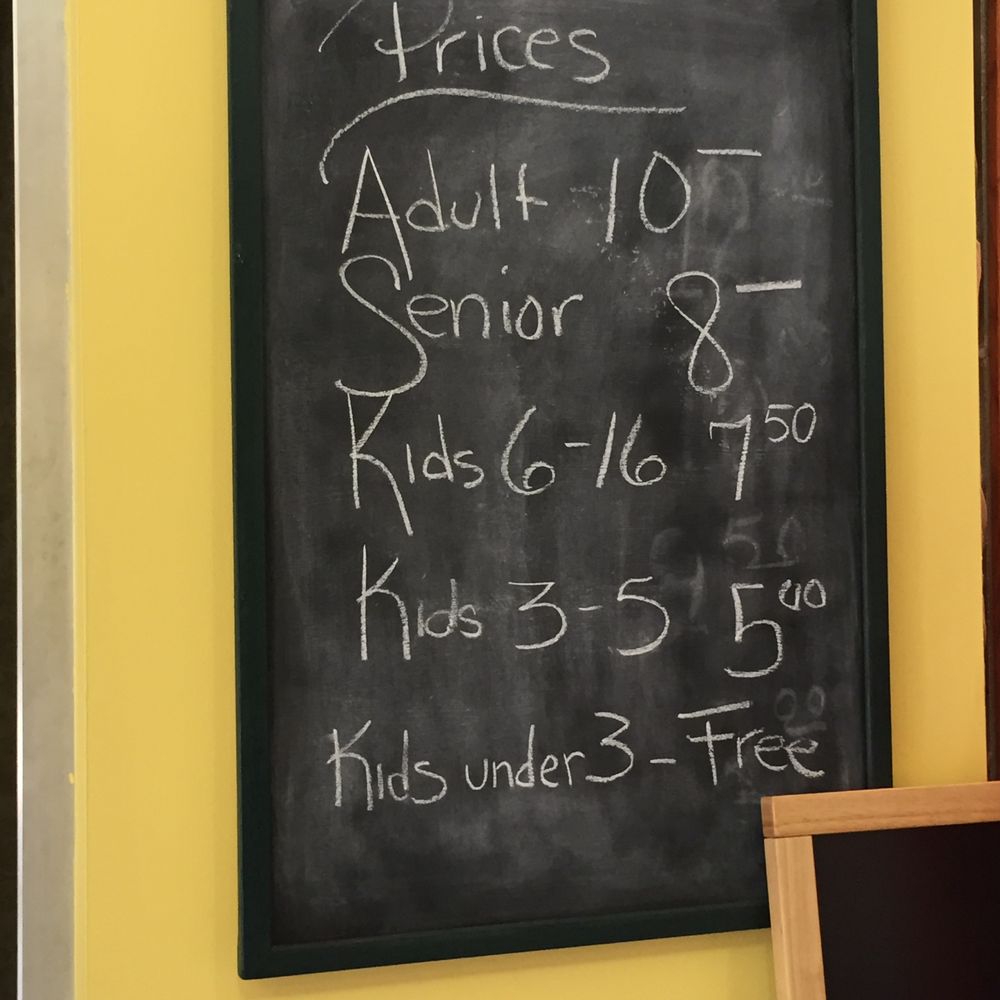 Prices
Adult - 10 —
Senior 8 —
Kids 6-16 7 50
Kids 3-5 5 00
Kids under 3 - Free